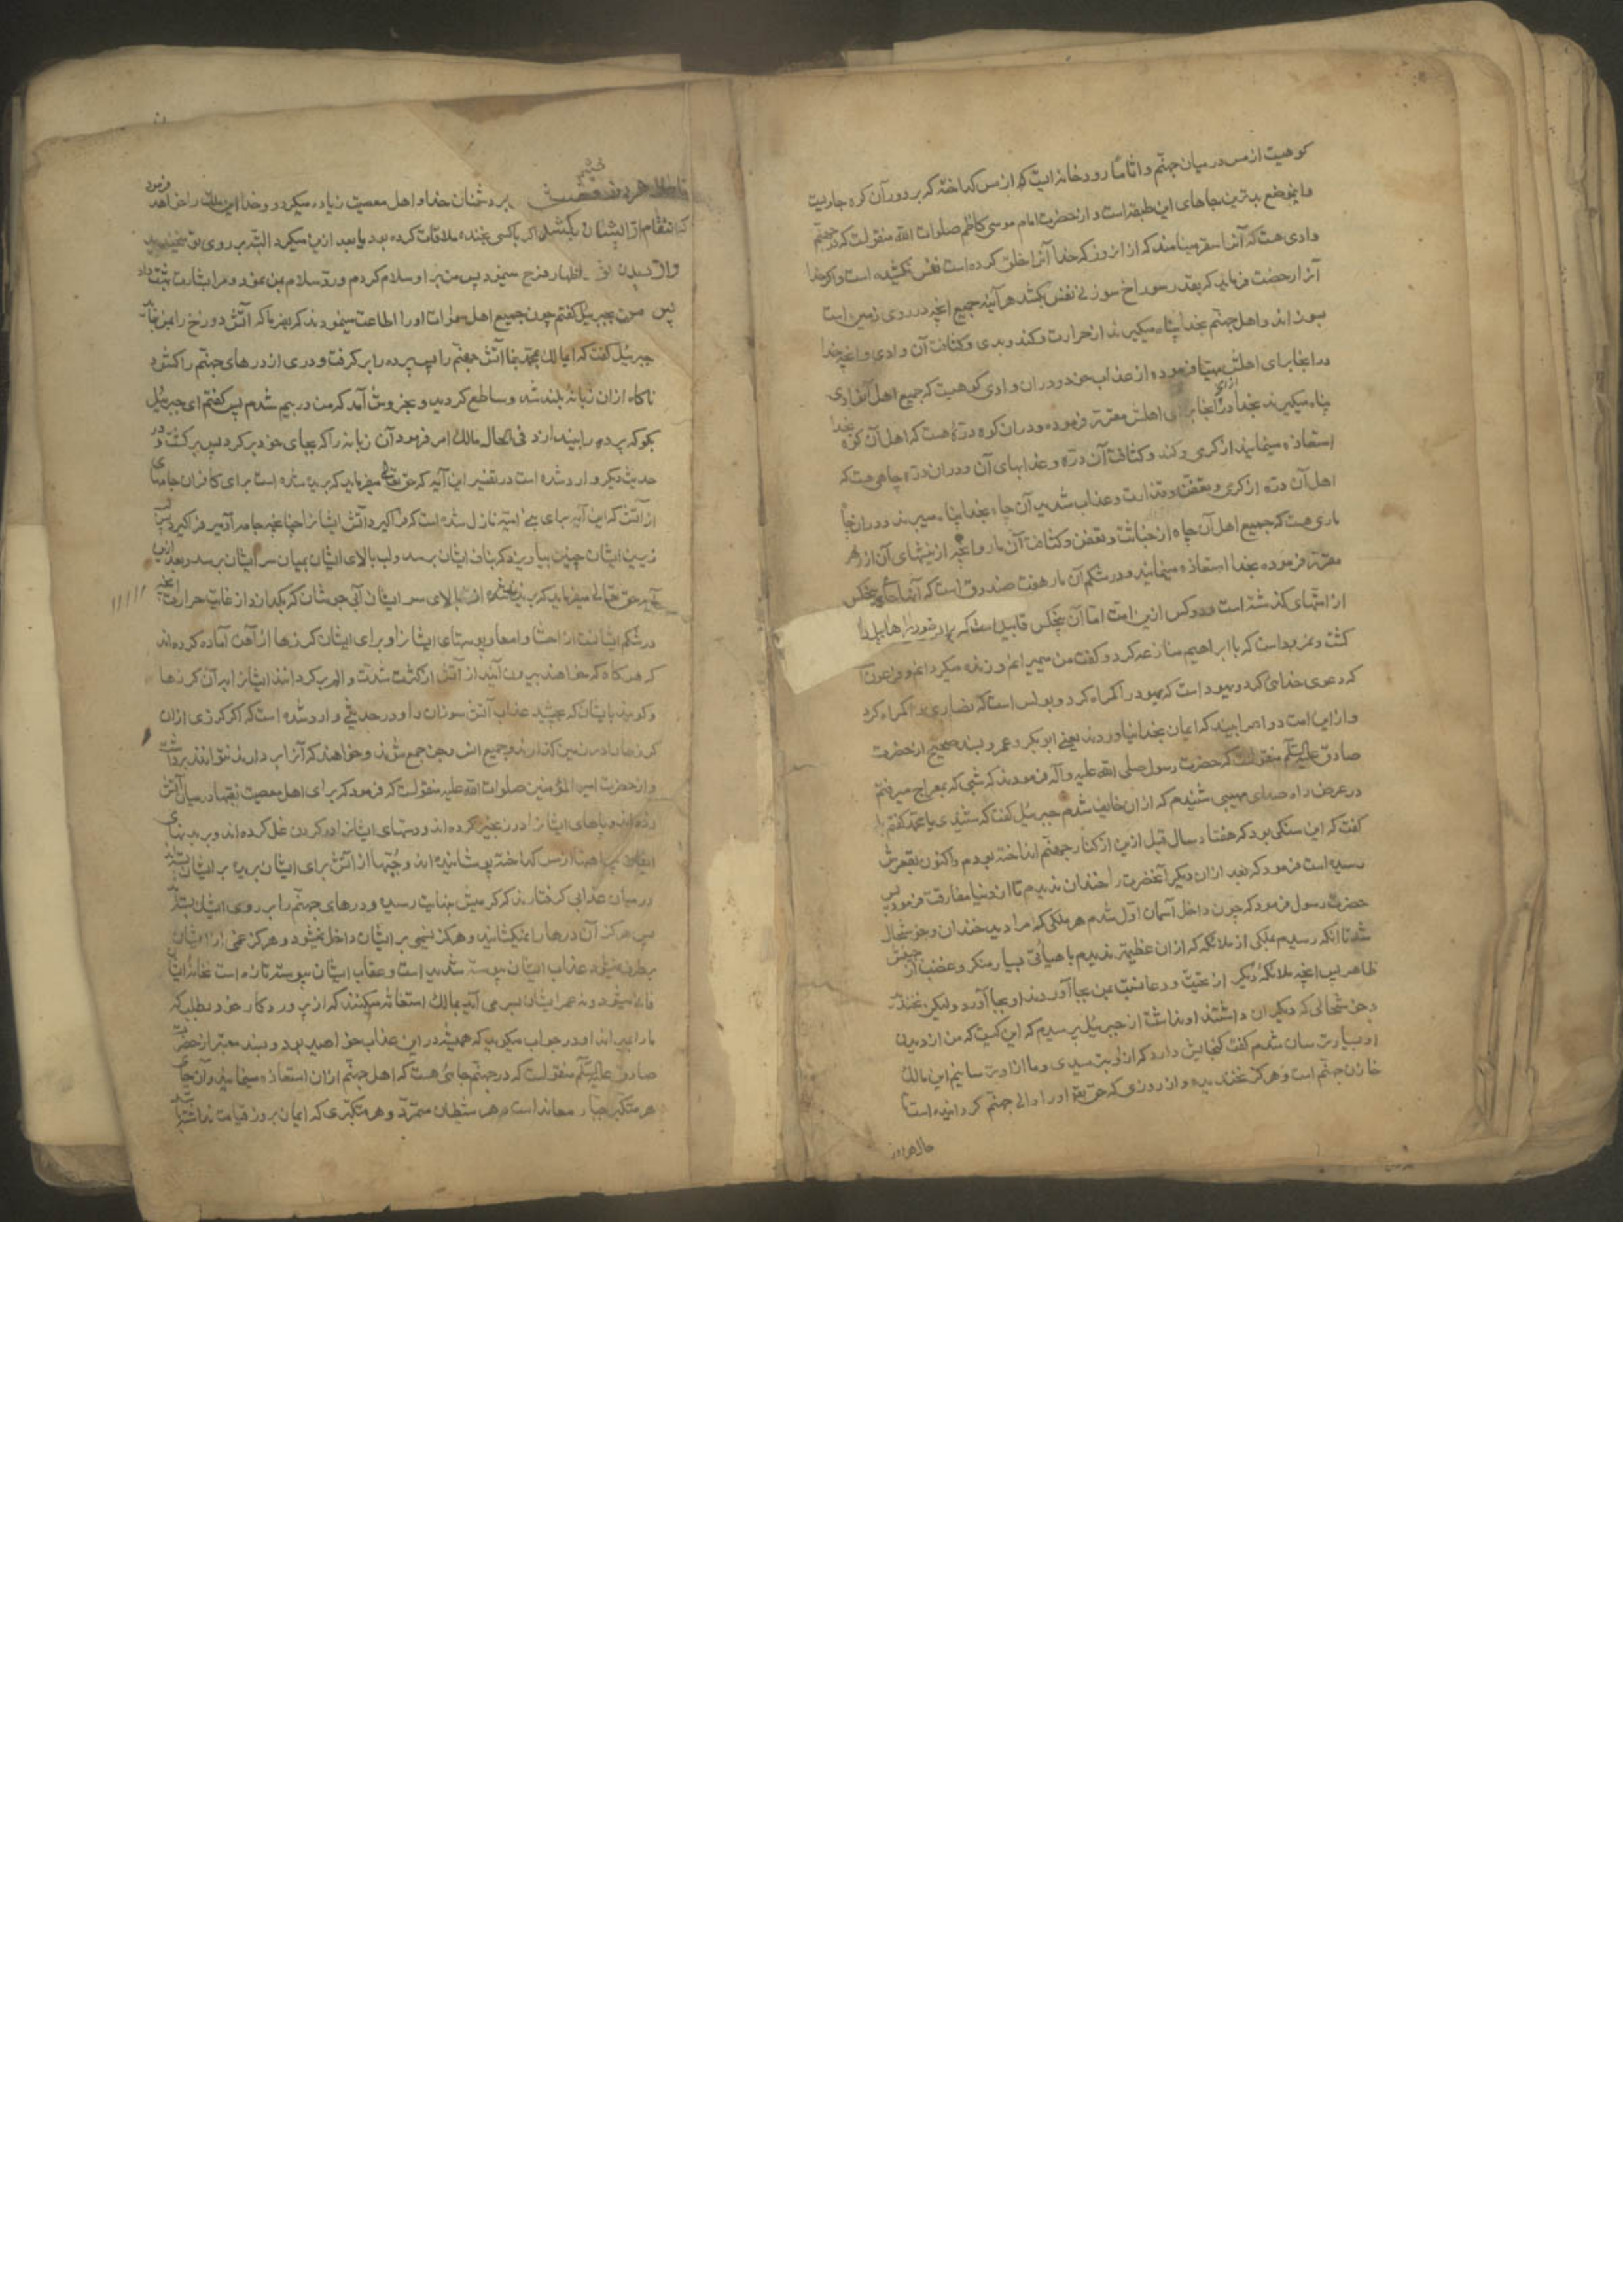 کوهیست از مس در میان جهنم و اثاما رودخانه ایست که از مس کداخته که بر دور آن کوه جاریست
و این موضع بدترین جاهای این طبقه است و از حضرت امام موسی کاظم صلوات الله منقولست که در جهنم
وادی هست که آنرا سقر مینامند که از انروز که خدا آنرا خلق کرده است نفس نکشیده است و اکر خدا
آنرا رخصت فرماید که بقدر سوراخ سوزنی نفس بکشد هر آینه جمیع آنچه در روی زمین است
بسوزاند و اهل جهنم بخدا پناه میکیرند از حرارت و کند و بدی و کثافت آن وادی و آنچه خدا
در انجا برای اهلش مهیا فرموده از عذاب خود و دران وادی کوهیست که جمیع اهل آنوادی
پناه میکیرند بخدا از کرمی انجا برای اهلش مقرر فرموده و دران کوه دره هست که اهل آن کوه بخدا
استعاذه مینمایند از کرمی و کند و کثافت آن دره و عذابهای آن و دران دره چاهی هست که
اهل آن دره از کرمی و تعفن و قذارت و عذاب شدید آن چاه بخدا پناه میبرند و دران چاه
ماری هست که جمیع اهل آن چاه از خباثت و تعفن و کثافت آن مار و آنچه از نیشهای آن از زهر
مقرر فرموده بخدا استعاذه مینمایند و در شکم آن مار هفت صندوق است که آنها جای پنجکس
از امتهای کذشته است و دو کس ازین امت اما آن پنجکس قابیل است که برادر خود را هابیل را
کشت و نمرود است که با ابراهیم منازعه کرد و کفت من میمیرانم و زنده میکردانم و فرعون
که دعوی خدایی کرد و یهود است که یهود را کمراه کرد و بولس است که نصاری را کمراه کرد
و از این امت دو اعرابیند که ایمان بخدا نیاوردند یعنی ابو بکر و عمر و بسند صحیح از حضرت
صادق علیه السلام منقولست که حضرت رسول صلی الله علیه و آله فرمودند که شبی که بمعراج میرفتم
در عرض راه صدای مهیبی شنیدم که از ان خایف شدم جبرئیل کفت که شنیدی یا محمد کفتم بلی
کفت که این سنکی بود که هفتاد سال قبل ازین از کنار جهنم انداخته بودم و اکنون بقعرش
رسیده است فرمود که بعد از ان دیکر آنحضرت را خندان ندیدم تا از دنیا مفارقت فرمود پس
حضرت رسول فرمود که چون داخل آسمان اول شدم هر ملکی که مرا دید خندان و خوشحال
شد تا انکه رسیدم بملکی از ملائکه که از ان عظیمتر ندیدم با هیأتی بسیار منکر و غضب از جبینش
ظاهر پس آنچه ملائکهٔ دیکر از تحیت و دعا نسبت بمن بجا آوردند او بجا آورد ولیکن نخندید
و خوشحالی که دیکران داشتند او نداشت از جبرئیل پرسیدم که این کیست که من از دیدن
او بسیار ترسان شدم کفت کنجایش دارد که از او بترسیدی و ما از او ترسانیم این مالک
خازن جهنم است و هرکز نخندیده و از روزی که حق تعالی او را والی جهنم کردانیده است تا
حال هر روز
تا حال هر روز خشمش بر دشمنان خدا و اهل معصیت زیاده میکردد و خدا این ملک را خواهد فرمود
که انتقام از ایشان بکشد و اکر با کسی بخنده ملاقات کرده بود یا بعد ازین میکرد البته بر روی تو میخندید
و از دیدن تو اظهار فرح مینمود پس من بر او سلام کردم و رد سلام من نمود و مرا بشارت بهشت داد
پس من بجبرئیل کفتم چون جمیع اهل سموات او را اطاعت مینمودند که بفرما که آتش دوزخ را بمن بنماید
جبرئیل کفت که ای مالک بمحمد بنما آتش جهنم را پس پرده را بر کرفت و دری از درهای جهنم را کشود
ناکاه از ان زبانهٔ بلند شد و ساطع کردید و بخروش آمد که من در بیم شدم پس کفتم ای جبرئیل
بکو که پرده را بیندازد فی الحال مالک امر فرمود آن زبانه را که بجای خود بر کرد پس برکشت و در
حدیث دیکر وارد شده است در تفسیر این آیه که حق تعالی میفرماید که بریده شده است برای کافران جامهای
از آتش که این آیه برای بنی امیه نازل شده است که فراکیرد آتش ایشانرا چنانچه جامه آدمی را فراکیرد پس
زیرین ایشان چنین بیاویزد که بناف ایشان برسد و لب بالای ایشان بمیان سر ایشان برسد و بعد ازین
آیه حق تعالی میفرماید که بریخته شده از بالای سر ایشان آبی جوشان که بکدازد از غایت حرارت آنچه
در شکم ایشانست از احشا و امعا و پوستهای ایشانرا و برای ایشان کرزها از آهن آماده کرده اند
که هر کاه که خواهند بیرون آیند از آتش از کثرت شدت و الم بر کردانند ایشانرا بران کرزها
و کویند بایشان که بچشید عذاب آتش سوزان را و در حدیثی وارد شده است که اکر کرزی از ان
کرزها را در زمین کذارند و جمیع انس و جن جمع شوند و خواهند که آنرا بردارند نتوانند برداشت
و از حضرت امیر المؤمنین صلوات الله علیه منقولست که فرمود که برای اهل معصیت نقبها در میان آتش
زده اند و پاهای ایشانرا در زنجیر کرده اند و دستهای ایشانرا در کردن غل کرده اند و بر بدنهای
ایشان پیراهنها از مس کداخته پوشانیده اند و جبه ها از آتش برای ایشان بریده بر ایشان
در میان عذابی کرفتارند که کرمیش بنهایت رسیده و درهای جهنم را بر روی ایشان بسته اند
پس هرکز آن درها را نمیکشایند و هرکز نسیمی بر ایشان داخل نمیشود و هرکز غمی از ایشان
برطرف نمیشود عذاب ایشان پیوسته شدید است و عقاب ایشان پیوسته تازه است نه خانهٔ ایشان
فانی میشود و نه عمر ایشان بسر می آید بمالک استغاثه میکنند که از پروردکار خود بطلب که
ما را بمیراند او در جواب میکوید که همیشه در این عذاب خواهید بود و بسند معتبر از حضرت
صادق علیه السلام منقولست که در جهنم چاهی هست که اهل جهنم از ان استعاذه مینمایند و آن جای
هر متکبر جبار معاند است و هر شیطان متمرد و هر متکبری که ایمان بروز قیامت نداشته باشد